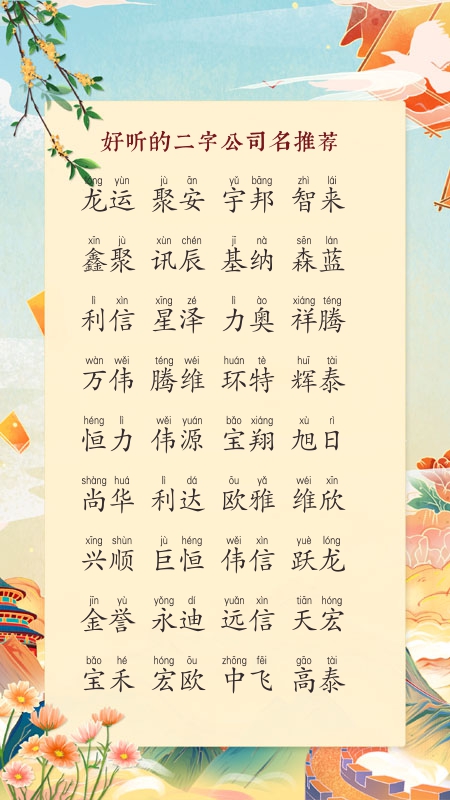 好听的二字公司名推荐
lóng yùn jù ān yǔ bāng zhì lái
龙运 聚安 宇邦 智来
xīn jù xùn chén jī nà sēn lán
鑫聚 讯辰 基纳 森蓝
lì xìn xīng zé lì ào xiáng téng
利信 星泽 力奥 祥腾
wàn wěi téng wéi huán tè huī tài
万伟 腾维 环特 辉泰
héng lì wěi yuán bǎo xiáng xù rì
恒力 伟源 宝翔 旭日
shàng huá lì dá ōu yǎ wéi xīn
尚华 利达 欧雅 维欣
xīng shùn jù héng wěi xìn yuè lóng
兴顺 巨恒 伟信 跃龙
jīn yù yǒng dí yuǎn xìn tiān hóng
金誉 永迪 远信 天宏
bǎo hé hóng ōu zhōng fēi gāo tài
宝禾 宏欧 中飞 高泰